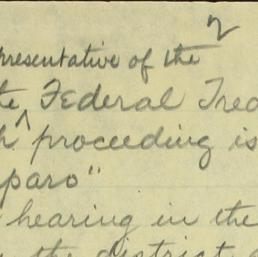 2
presentative of the
te Federal Trea
h proceeding is
paro"
hearing in the
the district